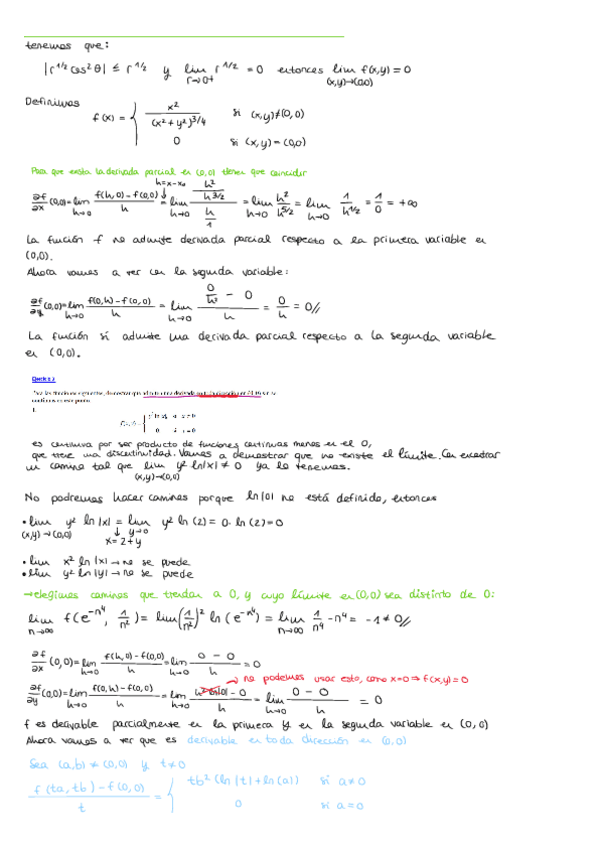 tenemos que:
|r^1/2 cos² θ| ≤ r^1/2 y lim r→0+ r^1/2 = 0 entonces lim (x,y)→(0,0) f(x,y) = 0
Definimos f(x) = { x² / (x² + y²)^3/4 si (x,y)≠(0,0)
0 si (x,y) = (0,0)
Para que exista la derivada parcial en (0,0) tienen que coincidir
h=x-x₀
∂f/∂x (0,0) = lim h→0 f(h,0) - f(0,0) / h = lim h→0 h²/h^3/2 / h/1 = lim h→0 h²/h^5/2 = lim h→0 1/h^1/2 = 1/0 = +∞
La función f no admite derivada parcial respecto a la primera variable en
(0,0).
Ahora vamos a ver con la segunda variable:
∂f/∂y (0,0) = lim h→0 f(0,h) - f(0,0) / h = lim h→0 0/h³ - 0 / h = 0/h = 0//
La función sí admite una derivada parcial respecto a la segunda variable
en (0,0).
es continua por ser producto de funciones continuas menos en el 0,
que tiene una discontinuidad. Vamos a demostrar que no existe el límite. Con encontrar
un camino tal que lim (x,y)→(0,0) y² ln|x| ≠ 0 ya lo tenemos.
No podremos hacer caminos porque ln|0| no está definido, entonces
• lim (x,y)→(0,0) y² ln|x| = lim y→0 y² ln(2) = 0 · ln(2) = 0
x = 2+y
• lim x² ln|x| → no se puede
• lim y² ln|y| → no se puede
→ elegimos caminos que tiendan a 0, y cuyo límite en (0,0) sea distinto de 0:
lim n→∞ f(e^-n⁴, 1/n²) = lim (1/n²)² ln(e^-n⁴) = lim n→∞ 1/n⁴ · -n⁴ = -1 ≠ 0//
∂f/∂x (0,0) = lim h→0 f(h,0) - f(0,0) / h = lim h→0 0 - 0 / h = 0
→ no podemos usar esto, como x=0 ⇒ f(x,y) = 0
∂f/∂y (0,0) = lim h→0 f(0,h) - f(0,0) / h = lim h→0 h² ln|0| - 0 / h = lim h→0 0 - 0 / h = 0
f es derivable parcialmente en la primera y en la segunda variable en (0,0)
Ahora vamos a ver que es derivable en toda dirección en (0,0)
Sea (a,b) ≠ (0,0) y t≠0
f(ta, tb) - f(0,0) / t = { tb² (ln|t| + ln|a|) si a≠0
0 si a=0